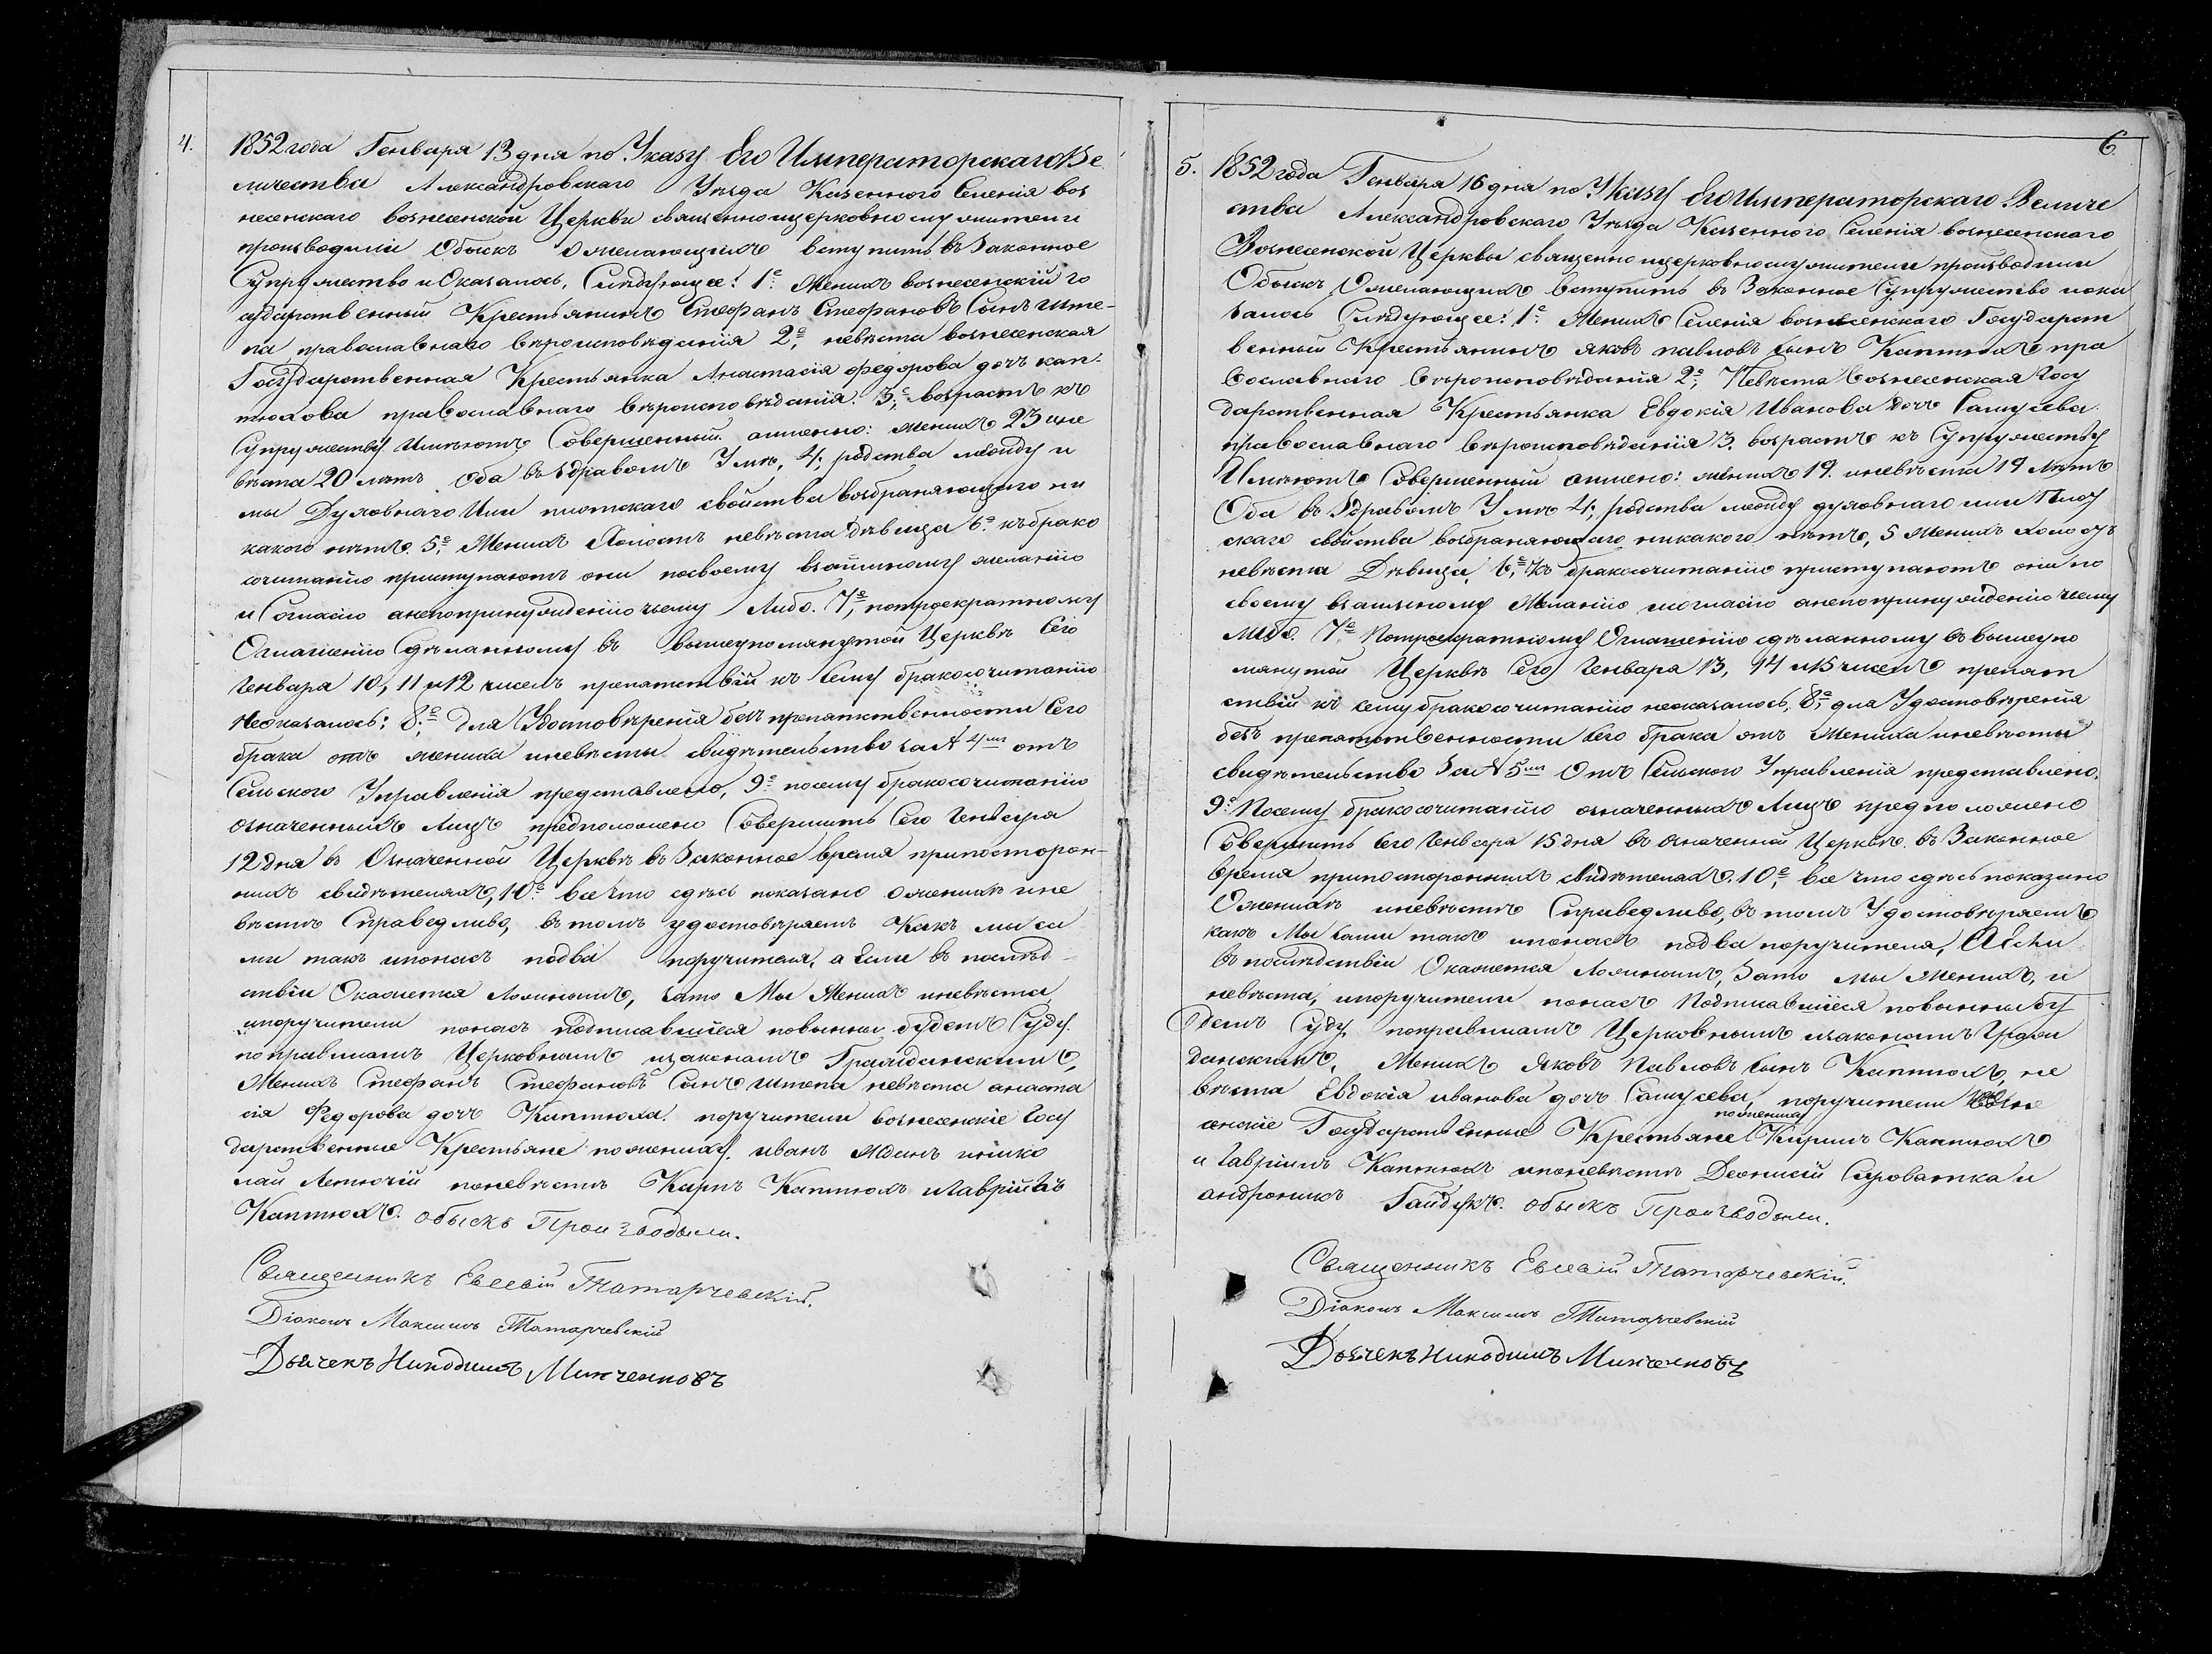 4.
1852 года Генваря 13 дня по Указу Его Императорскаго Ве
личества Александровскаго Уезда Казенного Селенія воз
несенскаго вознесенской Церкви священноицерковнослужители
производили Обыскъ Ожелающихъ вступить въ Законное
Супружество и Оказалось, Следующее: 1е Женихъ вознесенскій го
ударственный Крестьянинъ Стефанъ Стефановъ Сынъ Ште-
па православнаго вероисповеданія 2е, невеста вознесенская
Государственная Крестьянка Анастасія Федорова дочь кап-
тюхова православнаго вероисповеданія. 3е, возрастъ къ
Супружеству Имеютъ Совершенный аименно: женихъ 23 ине
веста 20 летъ Оба въ здравомъ Уме, 4; родства между и
мы Духовнаго Или плотскаго свойства возбраняющего ни
какого нетъ. 5е, Женихъ Холостъ невеста девица 6е къбрако
сочитанію приступаютъ они посвоему взаимному желанію
и Согласію анепопринужденію чьему Либо. 7е, потроекратному
Оглашенію Сделанному въ вышеупомянутой Церкве Сего
Генваря 10, 11 и 12 чиселъ препятствій къ Сему бракосочитанію
неоказалось: 8е, Для Удостоверенія безпрепятственности Сего
брака отъ жениха иневесты свидетельство за № 4мъ отъ
Сельского Управленія представлено, 9е посему бракосочитанію
означенныхъ Лицъ предположено Совершить Сего Генваря
12 дня въ Означенной Церкве въ Законное время припосторон-
нихъ свидетеляхъ, 10е все что сдесь показано оженихе ине
весте Справедливо, въ томъ удостоверяемъ Какъ мы са
ми такъ ипонасъ подва поручителя, а Если въ послед-
ствіи Окажется Ложнымъ, зато Мы Женихъ иневеста
ипоручители понасъ подписавшіеся повынны будемъ Суду
поправиламъ Церковнымъ изаконамъ Гражданскимъ,
Женихъ Стефанъ Стефановъ Сынъ Штепа невеста анаста
сія Федорова дочь Каптюха. поручители вознесенскіе Госу
дарственные Крестьяне пожениху. иванъ Жданъ инико
лай Летючій поневесте Карпъ Каптюхъ иГаврійлъ
Каптюхъ. обыскъ Производыли.
Священникъ Евсевій Татарчевскій.
Діаконъ Максимъ Татарчевскій
Дьячекъ Никодимъ Минченковъ
6
5. 1852 года Генваря 16 дня по Указу Его Императорскаго Величе
ства Александровскаго Уезда Казенного Селенія вознесенскаго
Вознесенской Церквы священноицерковнослужители произвадили
Обыскъ, Ожелающихъ Вступить въ Законное Супружество иока
залось Следующее: 1е Женихъ Селенія вознесенского Государст
венный Крестьянинъ яковъ павловъ сынъ Каптюхъ пра
вославнаго вероисповеданія 2е, Невеста Вознесенская Госу
дарственная Крестьянка Евдокія Иванова дочь
православнаго вероисповеданія 3. возрастъ къ Супружеству
Имеютъ Совершенный аимено: женихъ 19. иневеста 19 летъ
Оба въ Здравомъ Уме 4; родства между духовнаго или Плот
скаго свойства возбраняющаго никакого нетъ, 5 Женихъ холостъ
невеста Девица, 6е, къ бракосочитанію приступаютъ они по
своему взаимному Желанію исогласію анепопринужденію чьему
либо. 7е Потроекратному Оглашенію сделанному въ вышеупо
мянутой Церкве Сего Генваря 13, 14 и 15 числъ препят
ствій къ сему бракосочитанію неоказалось, 8е, для Удостоверенія
безъ препятственности Сего брака отъ Жениха иневесты
свидетельство За № 5мъ Отъ Сельского Управленія представлено.
9е Посему бракосочитанію означенныхъ Лицъ предположено
Совершить Сего Генваря 15 дня въ означенной Церкве въ Законное
время припосторонныхъ свидетелахъ. 10е, все что сдесь показано
Ожених иневесте Справедливо, въ томъ Удостоверяемъ,
какъ Мы сами такъ ипонасъ подва поручителя, Аесли
въ последствіи Окажется Ложнымъ, Зато мы Женихъ, и
невеста, ипоручители понасъ Подписавшіеся повынны бу
демъ Суду поправиламъ Церковнымъ изаконамъ Граж
данскимъ, Женихъ Яковъ Павловъ сынъ Каптюхъ, не
веста Евдокія иванова дочь поручители возне
пожениху
сенскіе Государственные Крестьяне Кирилъ Каптюхъ
и Гавріилъ Каптюхъ ипоневесте Деонисій Сыроватка и
андроникъ Гайдукъ. обыскъ Производыли.
Священникъ Евсевій Татарчевскій.
Діаконъ Максимъ Татарчевскій
Дьячекъ Никодимъ Минченковъ